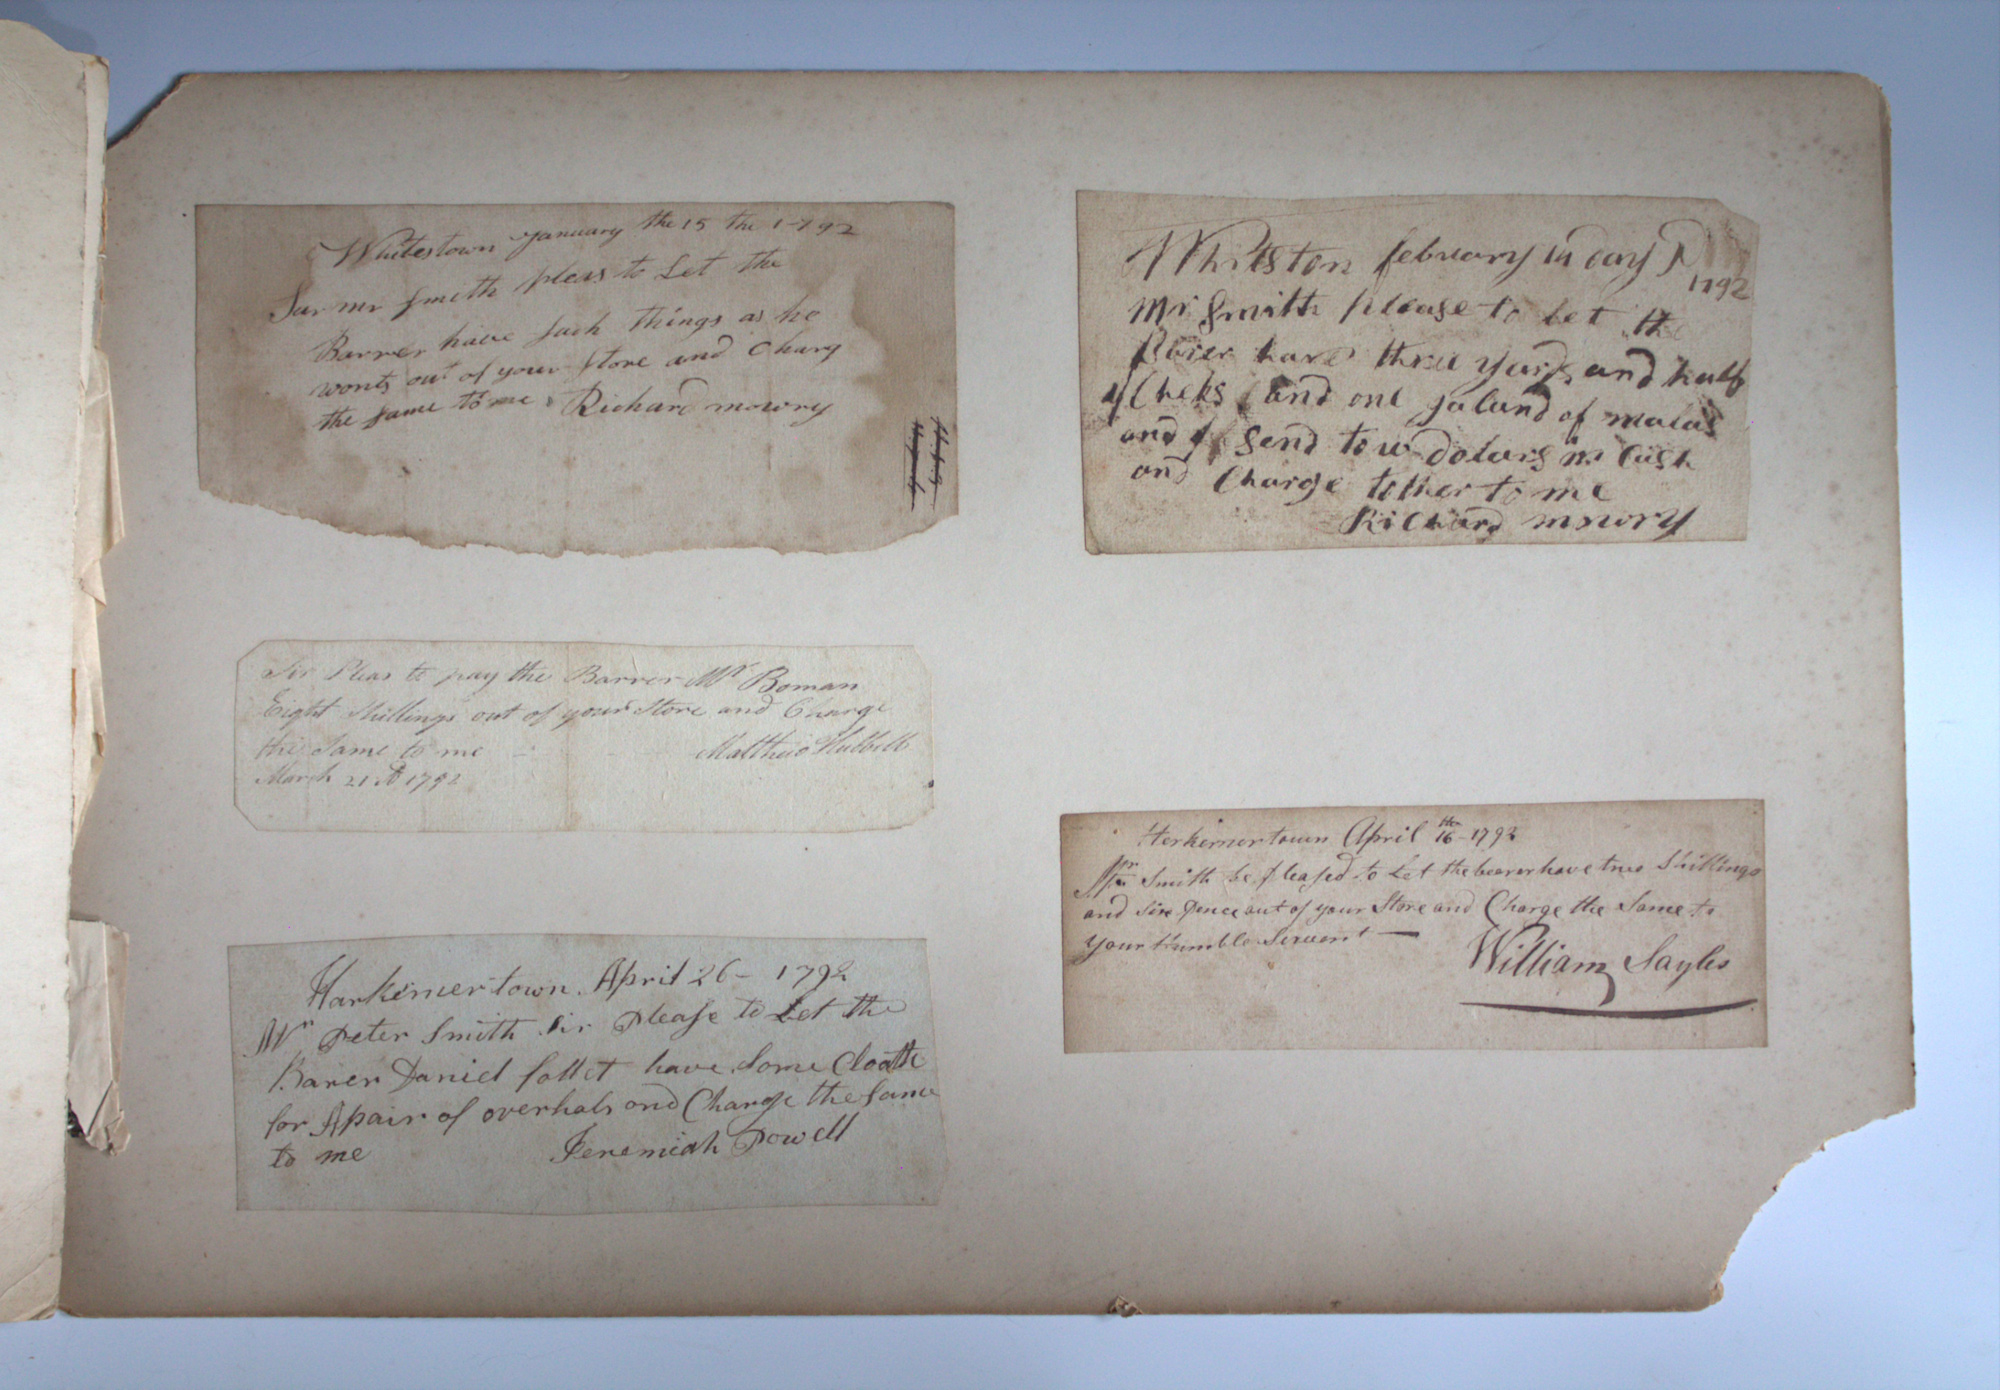 Whitestown January the 15 the 1792
Sur mr Smith pleas to Let the
Barrer have Such things as he
wonts out of your Store and Charg
the Same to me Richard mowry
Whitston february in day
1792
Mr Smith please to let the
have three yards and half
Cheks and one galund of malas
and send tow dolars in Cash
and Charge tother to me
Richard mowry
Sir Pleas to pay the Barrer Mr Boman
Eight Shillings out of your Store and Charge
the Same to me Matthew Hubbell
March 21 1792
Herkemertown April 16th 1792
Mr Smith be pleased to Let the bearer have two Shillings
and Six pence out of your Store and Charge the Same to
your humble Servent —
William Sayles
Harkemertown April 26 - 1792
Mr Peter Smith Sir Please to Let the
Barer Daniel follet have Some Cloath
for Apair of overhals and Charge the Same
to me Jeremiah Powell